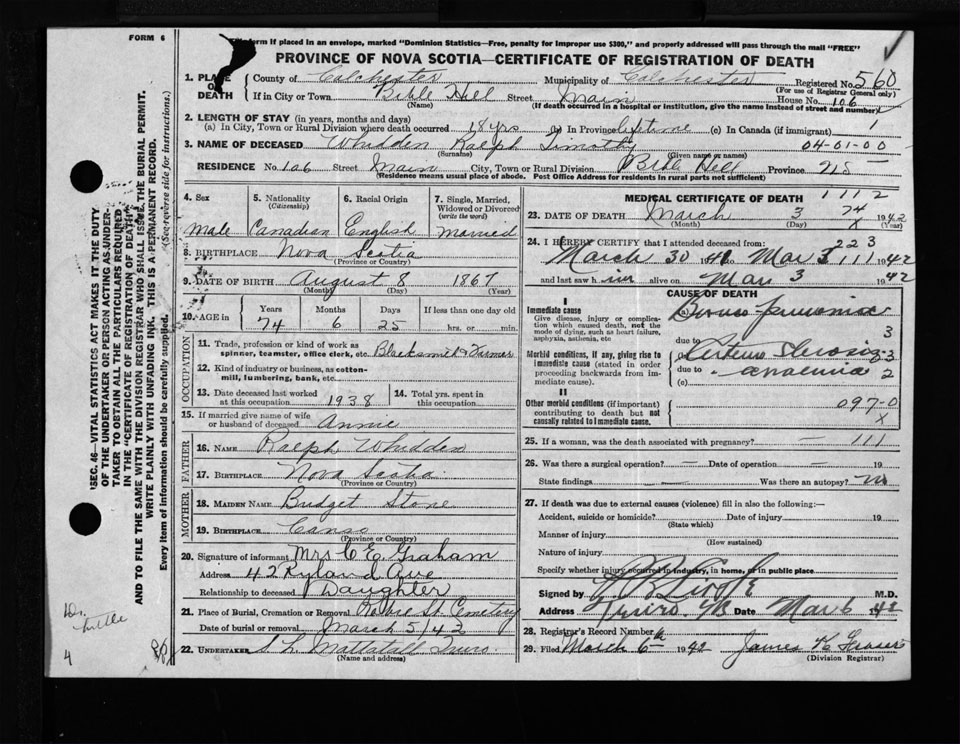 FORM 6
This form if placed in an envelope, marked "Dominion Statistics—Free, penalty for improper use $300," and properly addressed will pass through the mail "FREE"
PROVINCE OF NOVA SCOTIA—CERTIFICATE OF REGISTRATION OF DEATH
1. PLACE OF DEATH
County of Colchester Municipality of Colchester Registered No. 560
(For use of Registrar General only)
If in City or Town Bible Hill Street Main House No. 106
(Name) (If death occurred in a hospital or institution, give the name instead of street and number)
2. LENGTH OF STAY (in years, months and days)
(a) In City, Town or Rural Division where death occurred 18 yrs (b) In Province lifetime (c) In Canada (if immigrant) 1
3. NAME OF DECEASED Whidden Ralph Timothy 04-01-00
(Surname) (Given name or names)
RESIDENCE No. 106 Street Main City, Town or Rural Division Bible Hill Province
(Residence means usual place of abode. Post Office Address for residents in rural parts not sufficient)
4. Sex
Male
5. Nationality
(Citizenship)
Canadian
6. Racial Origin
English
7. Single, Married, Widowed or Divorced
(write the word)
Married
8. BIRTHPLACE Nova Scotia
(Province or Country)
9. DATE OF BIRTH August 8 1867
(Month) (Day) (Year)
10. AGE in Years Months Days If less than one day old
74 6 25 hrs. or min.
OCCUPATION
11. Trade, profession or kind of work as
spinner, teamster, office clerk, etc. Blacksmith & Farmer
12. Kind of industry or business, as cotton-
mill, lumbering, bank, etc.
13. Date deceased last worked
at this occupation 1938
14. Total yrs. spent in
this occupation
15. If married give name of wife
or husband of deceased Annie
FATHER
16. NAME Ralph Whidden
17. BIRTHPLACE Nova Scotia
(Province or Country)
MOTHER
18. MAIDEN NAME Budget Stone
19. BIRTHPLACE Canso
(Province or Country)
20. Signature of informant Mrs C E Graham
Address 42 Ryland Ave
Relationship to deceased Daughter
21. Place of Burial, Cremation or Removal Robie St. Cemetery
Date of burial or removal March 5/42
22. UNDERTAKER S L Mattatall Truro
(Name and address)
MEDICAL CERTIFICATE OF DEATH 1112
23. DATE OF DEATH March 3 74 1942
(Month) (Day) (Year)
24. I HEREBY CERTIFY that I attended deceased from: 223
March 30 to Mar 3 111 1942
and last saw h im alive on Mar 3 1942
CAUSE OF DEATH
I
Immediate cause
Give disease, injury or complica-
tion which caused death, not the
mode of dying, such as heart failure,
asphyxia, asthenia, etc
(a) Bronco pneumonia
due to 3
Morbid conditions, if any, giving rise to
immediate cause (stated in order
proceeding backwards from im-
mediate cause).
Arterio Sclerosis 3
due to anaemia 2
(c)
II
Other morbid conditions (if important)
contributing to death but not
causally related to immediate cause.
097-0
x
25. If a woman, was the death associated with pregnancy? — 111
26. Was there a surgical operation? — Date of operation — 19
State findings — Was there an autopsy? no
27. If death was due to external causes (violence) fill in also the following:—
Accident, suicide or homicide? Date of injury 19
(State which)
Manner of injury
(How sustained)
Nature of injury
Specify whether injury occurred in industry, in home, or in public place
Signed by M.D.
Address Truro NS Date Mar 6 1942
28. Registrar's Record Number
29. Filed March 6th 1942 James K Fraser
(Division Registrar)
SEC. 46—VITAL STATISTICS ACT MAKES IT THE DUTY
OF THE UNDERTAKER OR PERSON ACTING AS UNDER-
TAKER TO OBTAIN ALL THE PARTICULARS REQUIRED
IN THE "CERTIFICATE OF REGISTRATION OF DEATH"
AND TO FILE THE SAME WITH THE DIVISION REGISTRAR WHO SHALL ISSUE THE BURIAL PERMIT.
WRITE PLAINLY WITH UNFADING INK. THIS IS A PERMANENT RECORD.
Every item of information should be carefully supplied. (See reverse side for instructions.)
Dr.
4